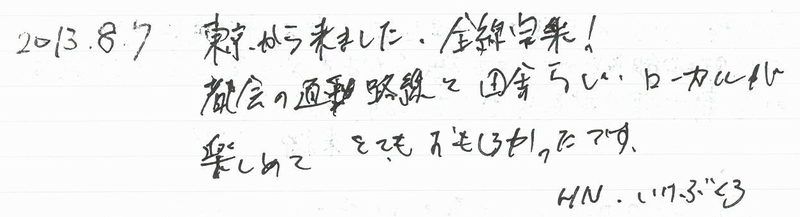 2013.8.7 東京から来ました。全線完乗!
都会の通勤路線と田舎らしい ローカル線
楽しめて とても おもしろかったです。
HN.いけぶくろ